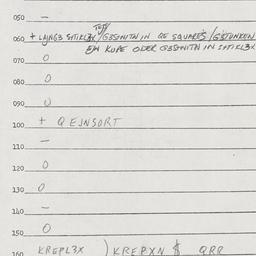 050 —
060 + LAJNG3 INTIKL3X /GESNITN IN QE SQUARES /GETUNKEN
EJN KUPE ODER GESNITN IN
070 O
080 O
090 O
100 + Q EJNSORT
110 —
120 O
130 O
140 —
150 O
160 KREPL3X ) KREPXN $ QRR